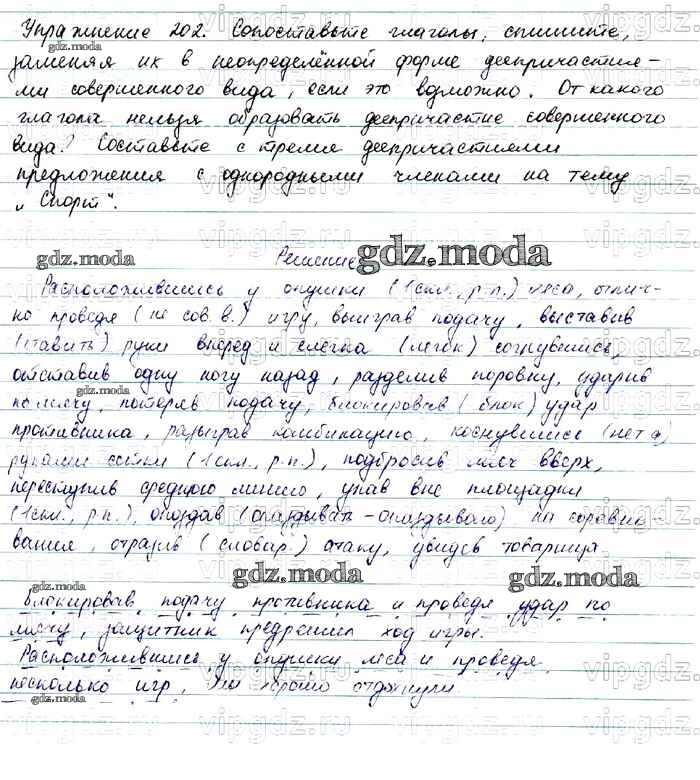 Упражнение 202. Сопоставьте глаголы, спишите,
заменяя их в неопределённой форме деепричастия-
ми совершенного вида, если это возможно. От какого
глагола нельзя образовать деепричастие совершенного
вида? Составьте с тремя деепричастиями
предложения с однородными членами на тему
"Спорт".
Решение
Расположившись у опушки (1 скл., р.п.) леса, отлич-
но проведя (не сов. в.) игру, выиграв подачу, выставив
(ставить) руки вперед и слегка (легок) согнувшись,
отставив одну ногу назад, разделив поровну, ударив
по мячу, потеряв подачу, блокировав (блок) удар
противника, разыграв комбинацию, коснувшись (нет а)
руками сетки (1 скл., р.п.), подбросив мяч вверх,
переступив среднюю линию, упав вне площадки
(1 скл., р.п.), опоздав (опаздывать - опаздываю) на соревно-
вания, отразив (словар.) атаку, увидев товарища.
Блокировав подачу противника и проведя удар по
мячу, защитник предрешил ход игры.
Расположившись у опушки леса и проведя
несколько игр, хорошо отдохнули.
gdz.moda
vipgdz.ru